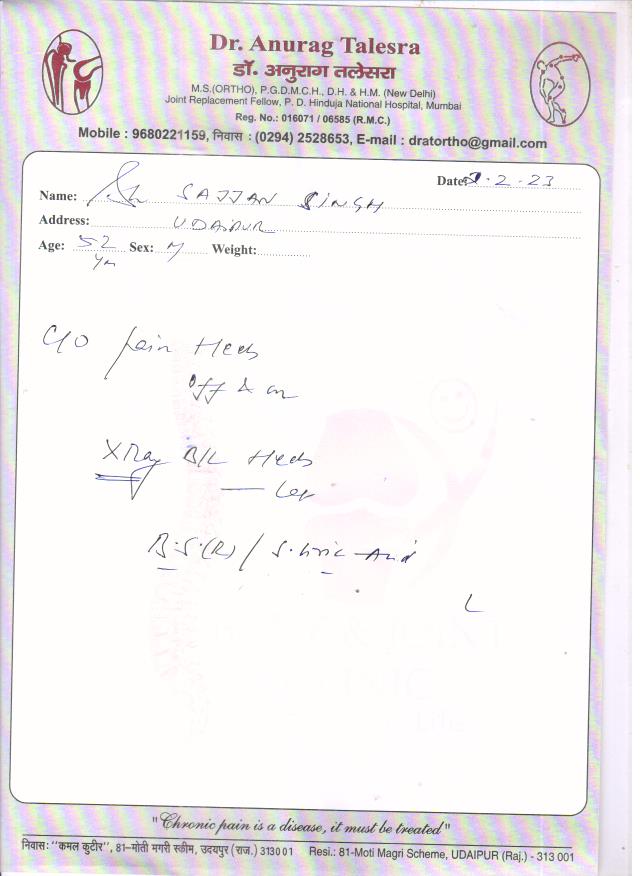 Dr. Anurag Talesra
डॉ. अनुराग तलेसरा
M.S.(ORTHO), P.G.D.M.C.H., D.H. & H.M. (New Delhi)
Joint Replacement Fellow, P. D. Hinduja National Hospital, Mumbai
Reg. No.: 016071 / 06585 (R.M.C.)
Mobile : 9680221159, निवास : (0294) 2528653, E-mail : dratortho@gmail.com
Date: .2.23
Name: SAJJAN SINGH
Address: UDAIPUR
Age: 52 Sex: M Weight:
Yrs
C/O pain Heels
Off & on
XRay B/L Heels
B.S.(R) / S. Uric Acid
"Chronic pain is a disease, it must be treated"
निवास: "कमल कुटीर", 81-मोती मगरी स्कीम, उदयपुर (राज.) 313001 Resi.: 81-Moti Magri Scheme, UDAIPUR (Raj.) - 313 001